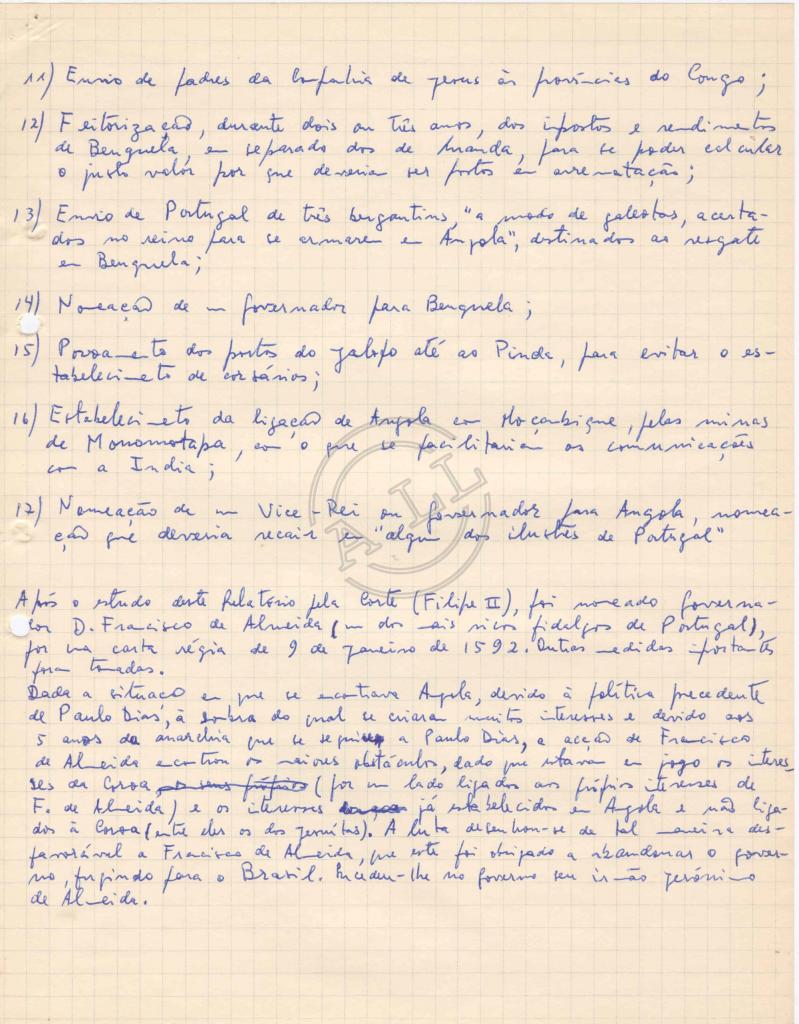 11) Envio de padres da Companhia de Jesus às províncias do Congo;
12) Feitorização, durante dois ou três anos, dos impostos e rendimentos
de Benguela, em separado dos de Luanda, para se poder calcular
o justo valor por que deveriam ser postos em arrematação;
13) Envio de Portugal de três bergantins, "a modo de galeotas, acerta-
dos no reino para se armarem em Angola", destinados ao resgate
em Benguela;
14) Nomeação de um governador para Benguela;
15) Povoamento dos portos do Jalofo até ao Pinda, para evitar o es-
tabelecimento de corsários;
16) Estabelecimento da ligação de Angola com Moçambique, pelas minas
de Monomotapa, com o que se facilitariam as comunicações
com a India;
17) Nomeação de um Vice-Rei ou governador para Angola, nomea-
ção que deveria recair em "algum dos ilustres de Portugal"
ALL
Após o estudo deste Relatório pela Corte (Filipe II), foi nomeado governa-
dor D. Francisco de Almeida (um dos mais ricos fidalgos de Portugal),
por uma carta régia de 9 de Janeiro de 1592. Outras medidas importantes
foram tomadas.
Dada a situação em que se encontrava Angola, devido à política precedente
de Paulo Dias, à sombra do qual se criaram muitos interesses e devido aos
5 anos de anarchia que se seguiu a Paulo Dias, a acção de Francisco
de Almeida encontrou os maiores obstáculos, dado que estavam em jogo os interes-
ses da Coroa, os seus próprios (por um lado ligados aos próprios interesses de
F. de Almeida) e os interesses já estabelecidos em Angola e não liga-
dos à Coroa (entre eles os dos jesuítas). A luta desenhou-se de tal maneira des-
favorável a Francisco de Almeida, que este foi obrigado a abandonar o gover-
no, fugindo para o Brasil. Sucedeu-lhe no governo seu irmão Jerónimo
de Almeida.